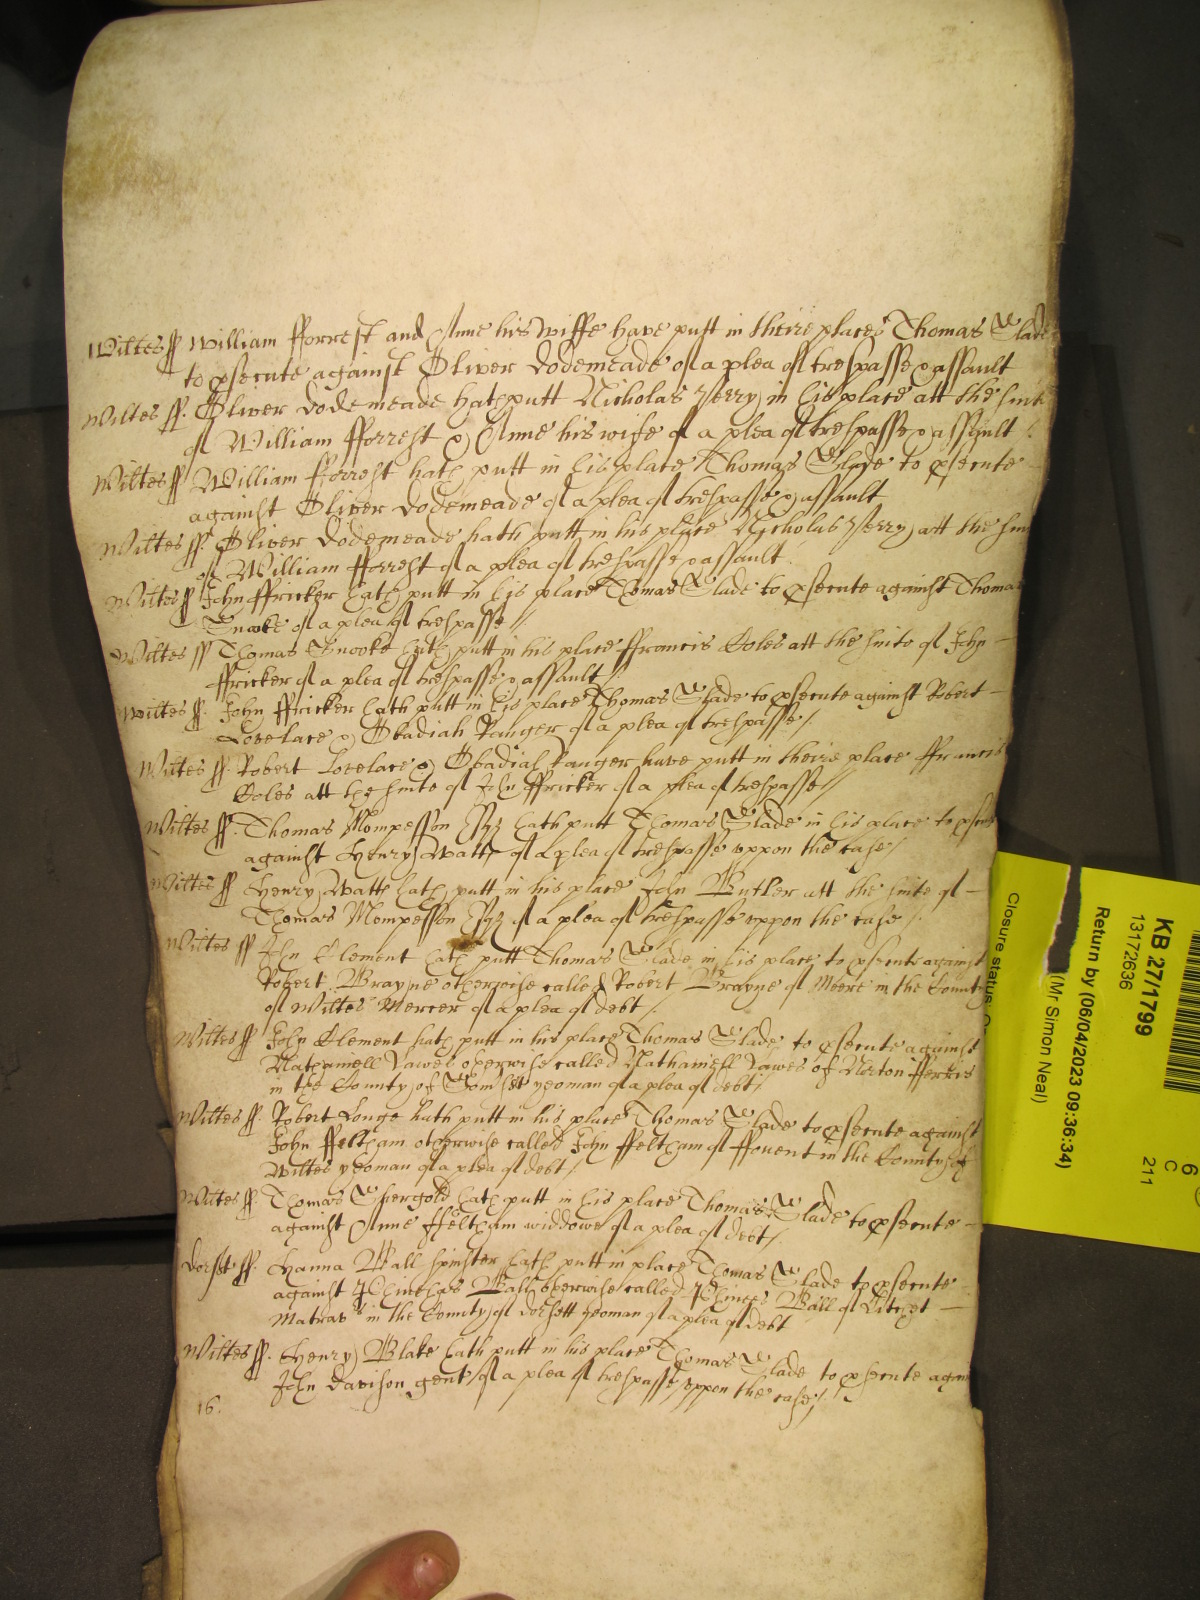 Wiltes ff William fforrest and Anne his wiffe have putt in theire places Thomas Slade
to psecute against Oliver Dodemeade of a plea of trespasse & assault
Wiltes ff. Oliver Dodemeade hath putt Nicholas in his place att the suite
of William fforrest & Anne his wife of a plea of trespasse & assault
Wiltes ff William fforrest hath putt in his place Thomas Slade to psecute
against Oliver Dodemeade of a plea of trespasse & assault
Wiltes ff. Oliver Dodemeade hath putt in his place Nicholas att the suite
of William fforrest of a plea of trespasse & assault
Wiltes ff John ffricker hath putt in his place Thomas Slade to psecute against Thomas
Snooke of a plea of trespasse //
Wiltes ff Thomas Snooke hath putt in his place ffrancis Coles att the suite of John —
ffricker of a plea of trespasse & assault /
Wiltes ff. John ffricker hath putt in his place Thomas Slade to psecute against Robert —
Lovelace & Obadiah Ranger of a plea of trespasse /
Wiltes ff. Robert Lovelace & Obadiah Ranger have putt in theire place ffrancis
Coles att the suite of John ffricker of a plea of trespasse //
Wiltes ff. Thomas Mompesson Esqr hath putt Thomas Slade in his place to psecute
against Henry Watts of a plea of trespasse uppon the case /
Wiltes ff Henry Watts hath putt in his place John Butler att the suite of —
Thomas Mompesson Esqr of a plea of trespasse uppon the case /
Wiltes ff John Clement hath putt Thomas Slade in his place to psecute against
Robert Brayne otherwise called Robert Brayne of Meere in the County
of Wiltes Mercer of a plea of debt /
Wiltes ff John Clement hath putt in his place Thomas Slade to psecute against
Nathaniell Lawes otherwise called Nathaniell Lawes of Norton fferris
in the County of Somset yeoman of a plea of debt /
Wiltes ff. Robert Longe hath putt in his place Thomas Slade to psecute against
John ffeltham otherwise called John ffeltham of ffovent in the County of
Wiltes yeoman of a plea of debt /
Wiltes ff. Thomas Shergold hath putt in his place Thomas Slade to psecute —
against Anne ffeltham widdowe of a plea of debt /
Dorset ff. Hanna Ball spinster hath putt in place Thomas Slade to psecute
against Ball otherwise called Ball of Litchet —
Matravs in the County of Dorsett yeoman of a plea of debt
Wiltes ff. Henry Blake hath putt in his place Thomas Slade to psecute against
John Davison gent of a plea of trespasse uppon the case /
16.
KB 27/1799
13172636
Return by (06/04/2023 09:36:34)
(Mr Simon Neal)
Closure status:
6
C
211